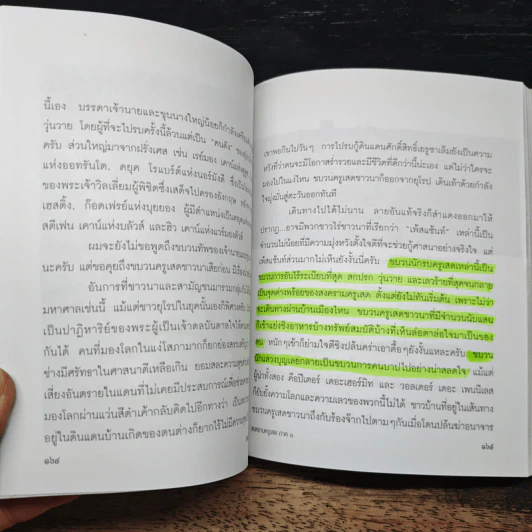 นี้เอง บรรดาเจ้านายและขุนนางใหญ่น้อยก็กำลังเตรียม
วุ่นวาย โดยผู้ที่จะไปรบครั้งนี้ล้วนแต่เป็น "คนดัง" ของ
ครับ ส่วนใหญ่มาจากฝรั่งเศส เช่น เรย์มอง เคาน์
แห่งออทรันโต, ดยุค โรแบร์ต์แห่งนอร์มังดี ซึ่งเป็น
ของพระเจ้าวิลเลี่ยมผู้พิชิตซึ่งเสด็จไปครองอังกฤษ หลัง
เฮสติ้ง, ก็อดเฟรย์แห่งบุยยอง ผู้มีตำแหน่งเป็นดยุค
สตีเฟน เคาน์แห่งบลัวส์ และฮิว เคาน์แห่งแวร์มองดัวส์
ผมจะยังไม่ขอพูดถึงขบวนทัพของเจ้านาย
นะครับ แต่ขอคุยถึงขบวนครูเสดชาวนาเสียก่อน
อันการที่ชาวนาและสามัญชนมารวมกลุ่มกัน
มหาศาลเช่นนี้ แม้แต่ชาวยุโรปในยุคนั้นเองก็พิศวง
เป็นปาฏิหาริย์ของพระผู้เป็นเจ้าดลบันดาลใจให้
กันได้ คนที่มองโลกในแง่โสภามากก็ยกย่องสรรเสริญ
ช่างมีศรัทธาในศาสนาดีเหลือเกิน ยอมสละความสุข
เสี่ยงอันตรายในแดนที่ไม่เคยมีประสบการณ์เพื่อ
มองโลกผ่านแว่นสีดำเค้ากลับคิดไปอีกทางว่า เป็น
อยู่ในดินแดนบ้านเกิดของตนต่างก็ยากไร้ไม่มีความ
๑๖๔
เขาพอกินไปวันๆ การไปรบกู้ดินแดนศักดิ์สิทธิ์เยรูซาเล็มยังเป็นความ
หวังที่ว่าตนจะมีโอกาสร่ำรวยและมีชีวิตที่ดีกว่านี้น่ะเอง แต่ไม่ว่าใครจะ
มองไปในแง่ไหน ขบวนครูเสดชาวนาก็ออกจากยุโรป เดินเท้าด้วยกำลัง
ใจมุ่งมั่นสู่ตะวันออกทันที
เดินทางไปได้ไม่นาน ลายอันแท้จริงก็สำแดงออกมาให้
ปรากฏ...อาจมีพวกชาวไร่ชาวนาที่เรียกว่า "เพ้สแซ้นท์" เหล่านี้เป็น
จำนวนไม่น้อยที่มีความมุ่งหวังตั้งใจดีที่จะช่วยกู้ศาสนาอย่างจริงใจ แต่
เพ้สแซ้นท์ส่วนมากไม่เห็นยังงั้นนี่ครับ ขบวนนักรบครูเสดเหล่านี้เป็น
ขบวนการอันไร้ระเบียบที่สุด สกปรก วุ่นวาย และเลวร้ายที่สุดจนกลาย
เป็นจุดด่างพร้อยของสงครามครูเสด ตั้งแต่ยังไม่ทันเริ่มต้น เพราะไม่ว่า
จะเดินทางผ่านบ้านเมืองไหน ขบวนครูเสดชาวนาที่มีจำนวนนับแสน
ก็เข้าแย่งชิงอาหารบ้างทรัพย์สมบัติบ้างที่เห็นล่อตาล่อใจมาเป็นของ
ตน หนักๆเข้าก็ย่ามใจตีชิงปล้นคร่าเอาดื้อๆยังงั้นแหละครับ ขบวน
นักแสวงบุญเลยกลายเป็นขบวนการคนบาปไปอย่างน่าสลดใจ แม้แต่
ผู้นำทั้งสอง คือปีเตอร์ เดอะเฮอร์มิท และ วอลเตอร์ เดอะ เพนนิเลส
ก็ยับยั้งความโลภและความเลวของพวกนี้ไม่ได้ ชาวบ้านที่อยู่ในเส้นทาง
ขบวนครูเสดชาวนาถึงกับร้องจ๊ากไปตามๆกันเมื่อโดนปล้นฆ่าอนาจาร
สงครามครูเสด ภาค ๑
๑๖๕